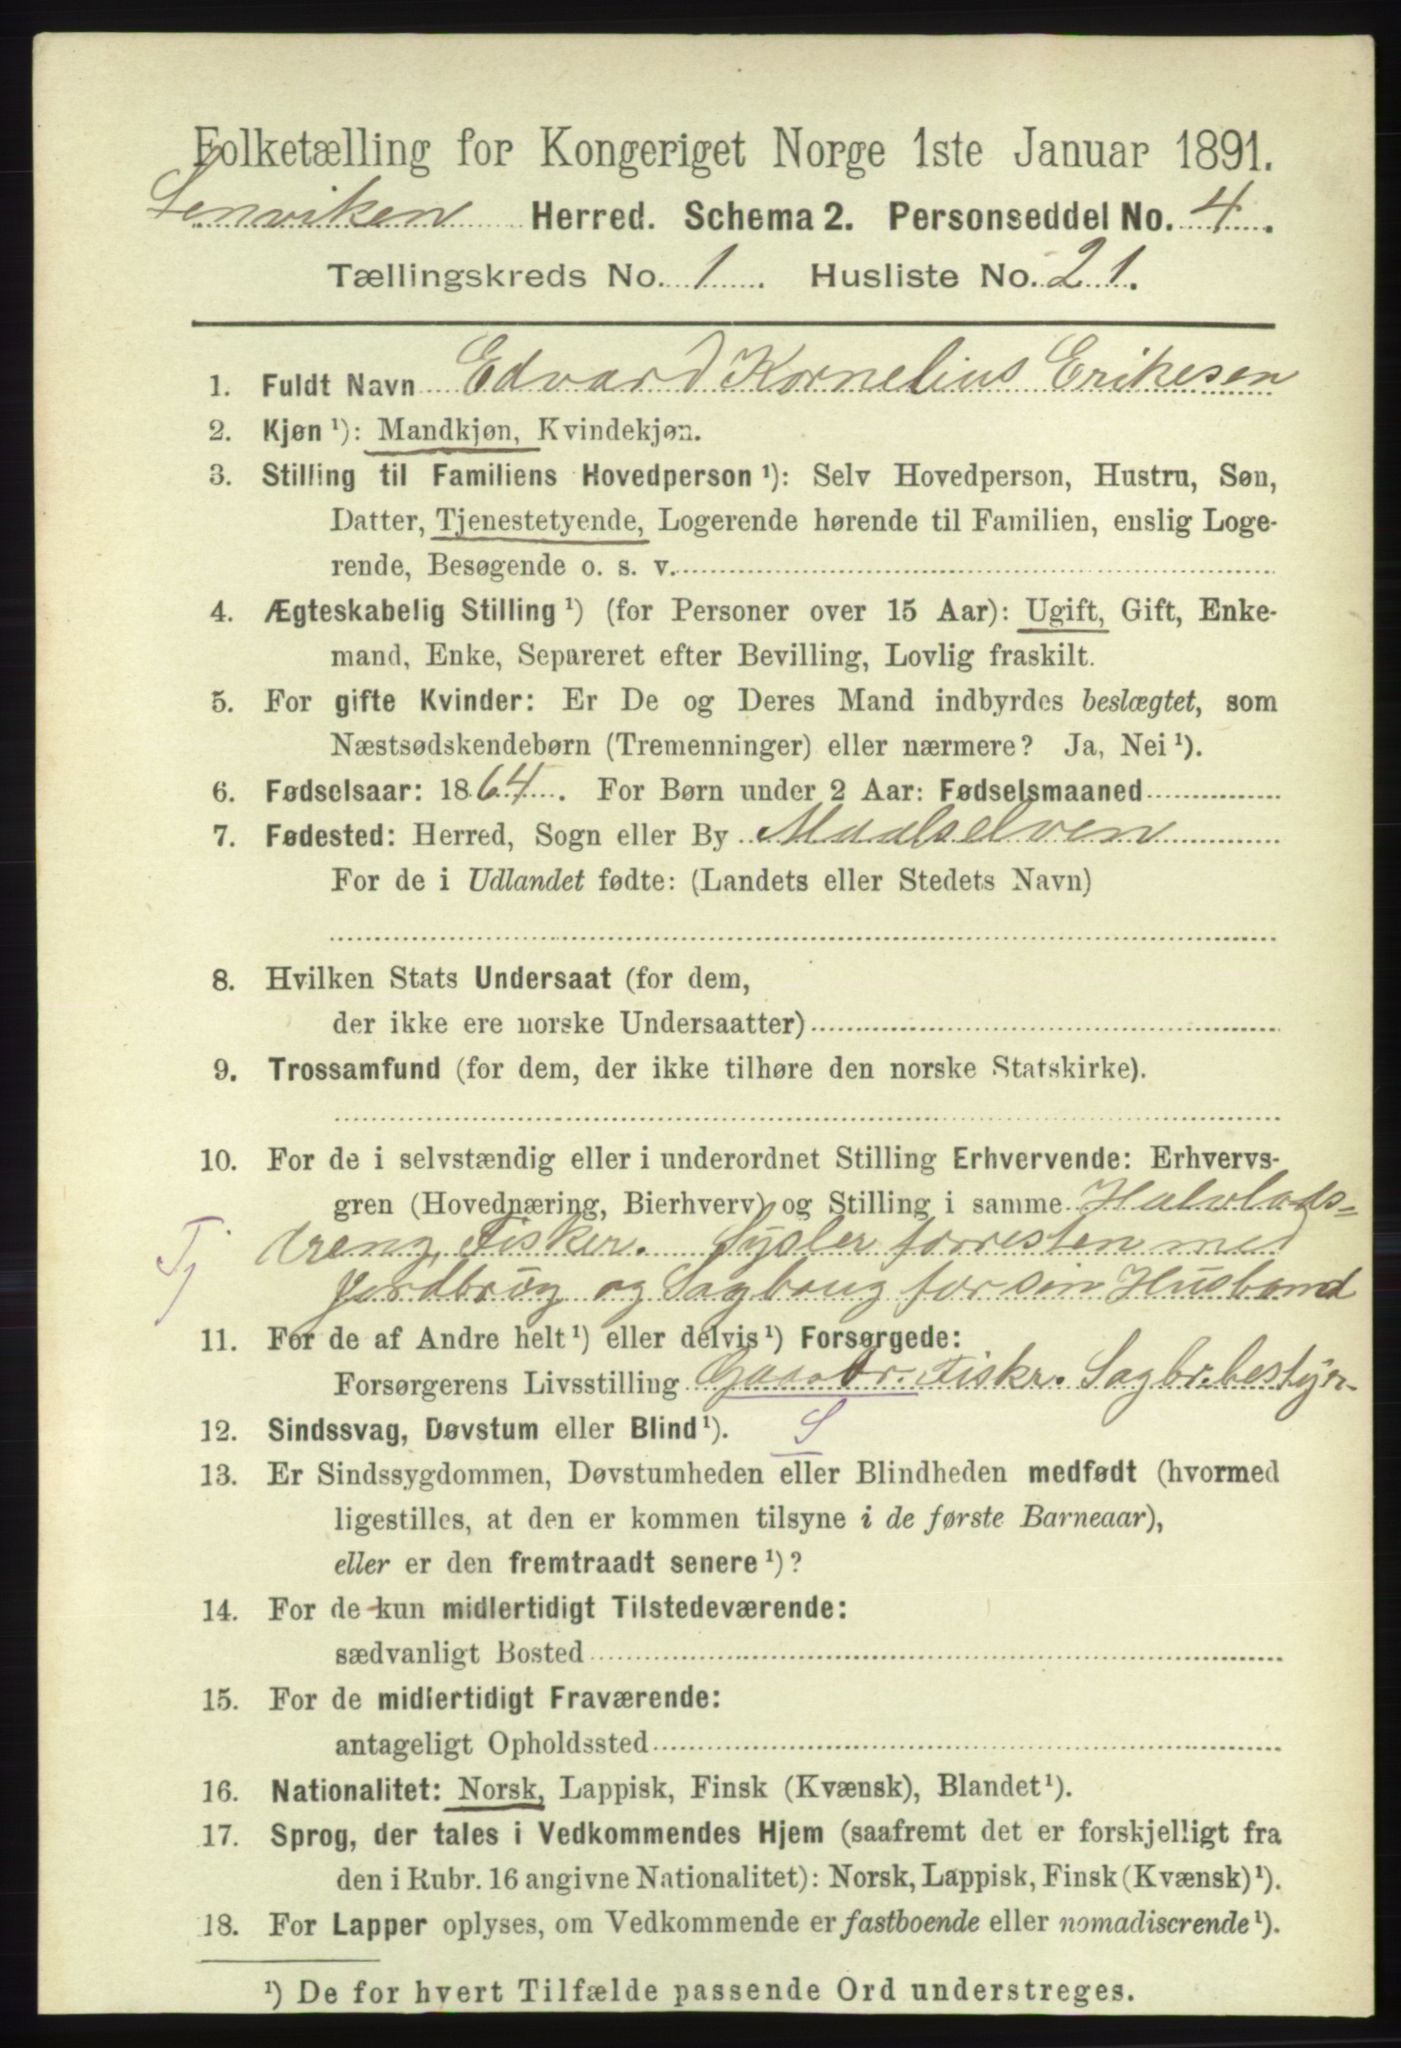 Folketælling for Kongeriget Norge 1ste Januar 1891.
Lenviken Herred. Schema 2. Personseddel No. 4.
Tællingskreds No. 1. Husliste No. 21.
1. Fuldt Navn Edvard Kornelius Eriksen
2. Kjøn ¹): Mandkjøn, Kvindekjøn.
3. Stilling til Familiens Hovedperson ¹): Selv Hovedperson, Hustru, Søn,
Datter, Tjenestetyende, Logerende hørende til Familien, enslig Loge-
rende, Besøgende o. s. v.
4. Ægteskabelig Stilling ¹) (for Personer over 15 Aar): Ugift, Gift, Enke-
mand, Enke, Separeret efter Bevilling, Lovlig fraskilt.
5. For gifte Kvinder: Er De og Deres Mand indbyrdes beslægtet, som
Næstsødskendebørn (Tremenninger) eller nærmere? Ja, Nei ¹).
6. Fødselsaar: 1864. For Børn under 2 Aar: Fødselsmaaned
7. Fødested: Herred, Sogn eller By Maalselven
For de i Udlandet fødte: (Landets eller Stedets Navn)
8. Hvilken Stats Undersaat (for dem,
der ikke ere norske Undersaatter)
9. Trossamfund (for dem, der ikke tilhøre den norske Statskirke).
10. For de i selvstændig eller i underordnet Stilling Erhvervende: Erhvervs-
gren (Hovednæring, Bierhverv) og Stilling i samme Halvlods-
Tj dreng, Fisker. Sysler forresten med
Jordbrug og Sagbrug for sin Husbond
11. For de af Andre helt ¹) eller delvis ¹) Forsørgede:
Forsørgerens Livsstilling Gaardbr. Fiskr. Sagbr.bestyr-
12. Sindssvag, Døvstum eller Blind ¹). S
13. Er Sindssygdommen, Døvstumheden eller Blindheden medfødt (hvormed
ligestilles, at den er kommen tilsyne i de første Barneaar),
eller er den fremtraadt senere ¹)?
14. For de kun midlertidigt Tilstedeværende:
sædvanligt Bosted
15. For de midlertidigt Fraværende:
antageligt Opholdssted
16. Nationalitet: Norsk, Lappisk, Finsk (Kvænsk), Blandet ¹).
17. Sprog, der tales i Vedkommendes Hjem (saafremt det er forskjelligt fra
den i Rubr. 16 angivne Nationalitet): Norsk, Lappisk, Finsk (Kvænsk) ¹).
18. For Lapper oplyses, om Vedkommende er fastboende eller nomadiserende ¹).
¹) De for hvert Tilfælde passende Ord understreges.